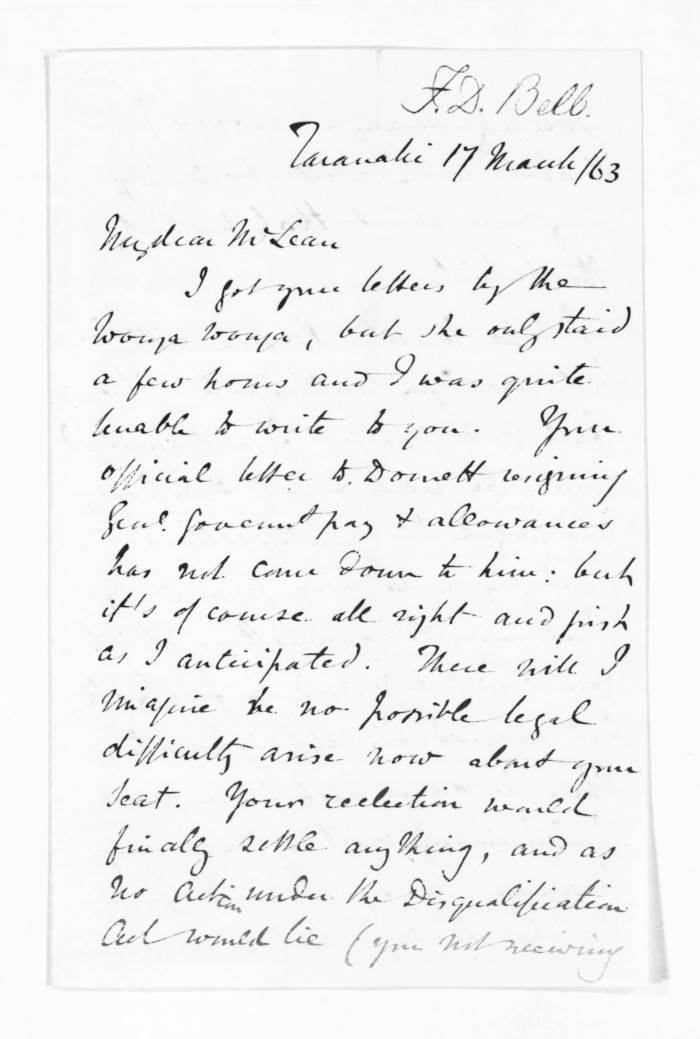 F. D. Bell.
Taranaki 17 March/63
My dear McLean
I got your letters by the
Wonga Wonga, but she only staid
a few hours and I was quite
unable to write to you. Your
official letter to Domett resigning
Genl. Governmt pay & allowances
has not come down to him: but
it's of course all right and just
as I anticipated. There will I
imagine be no possible legal
difficulty arise now about your
seat. Your reelection would
finally settle anything, and as
no action under the Disqualification
Act would lie (you not receiving